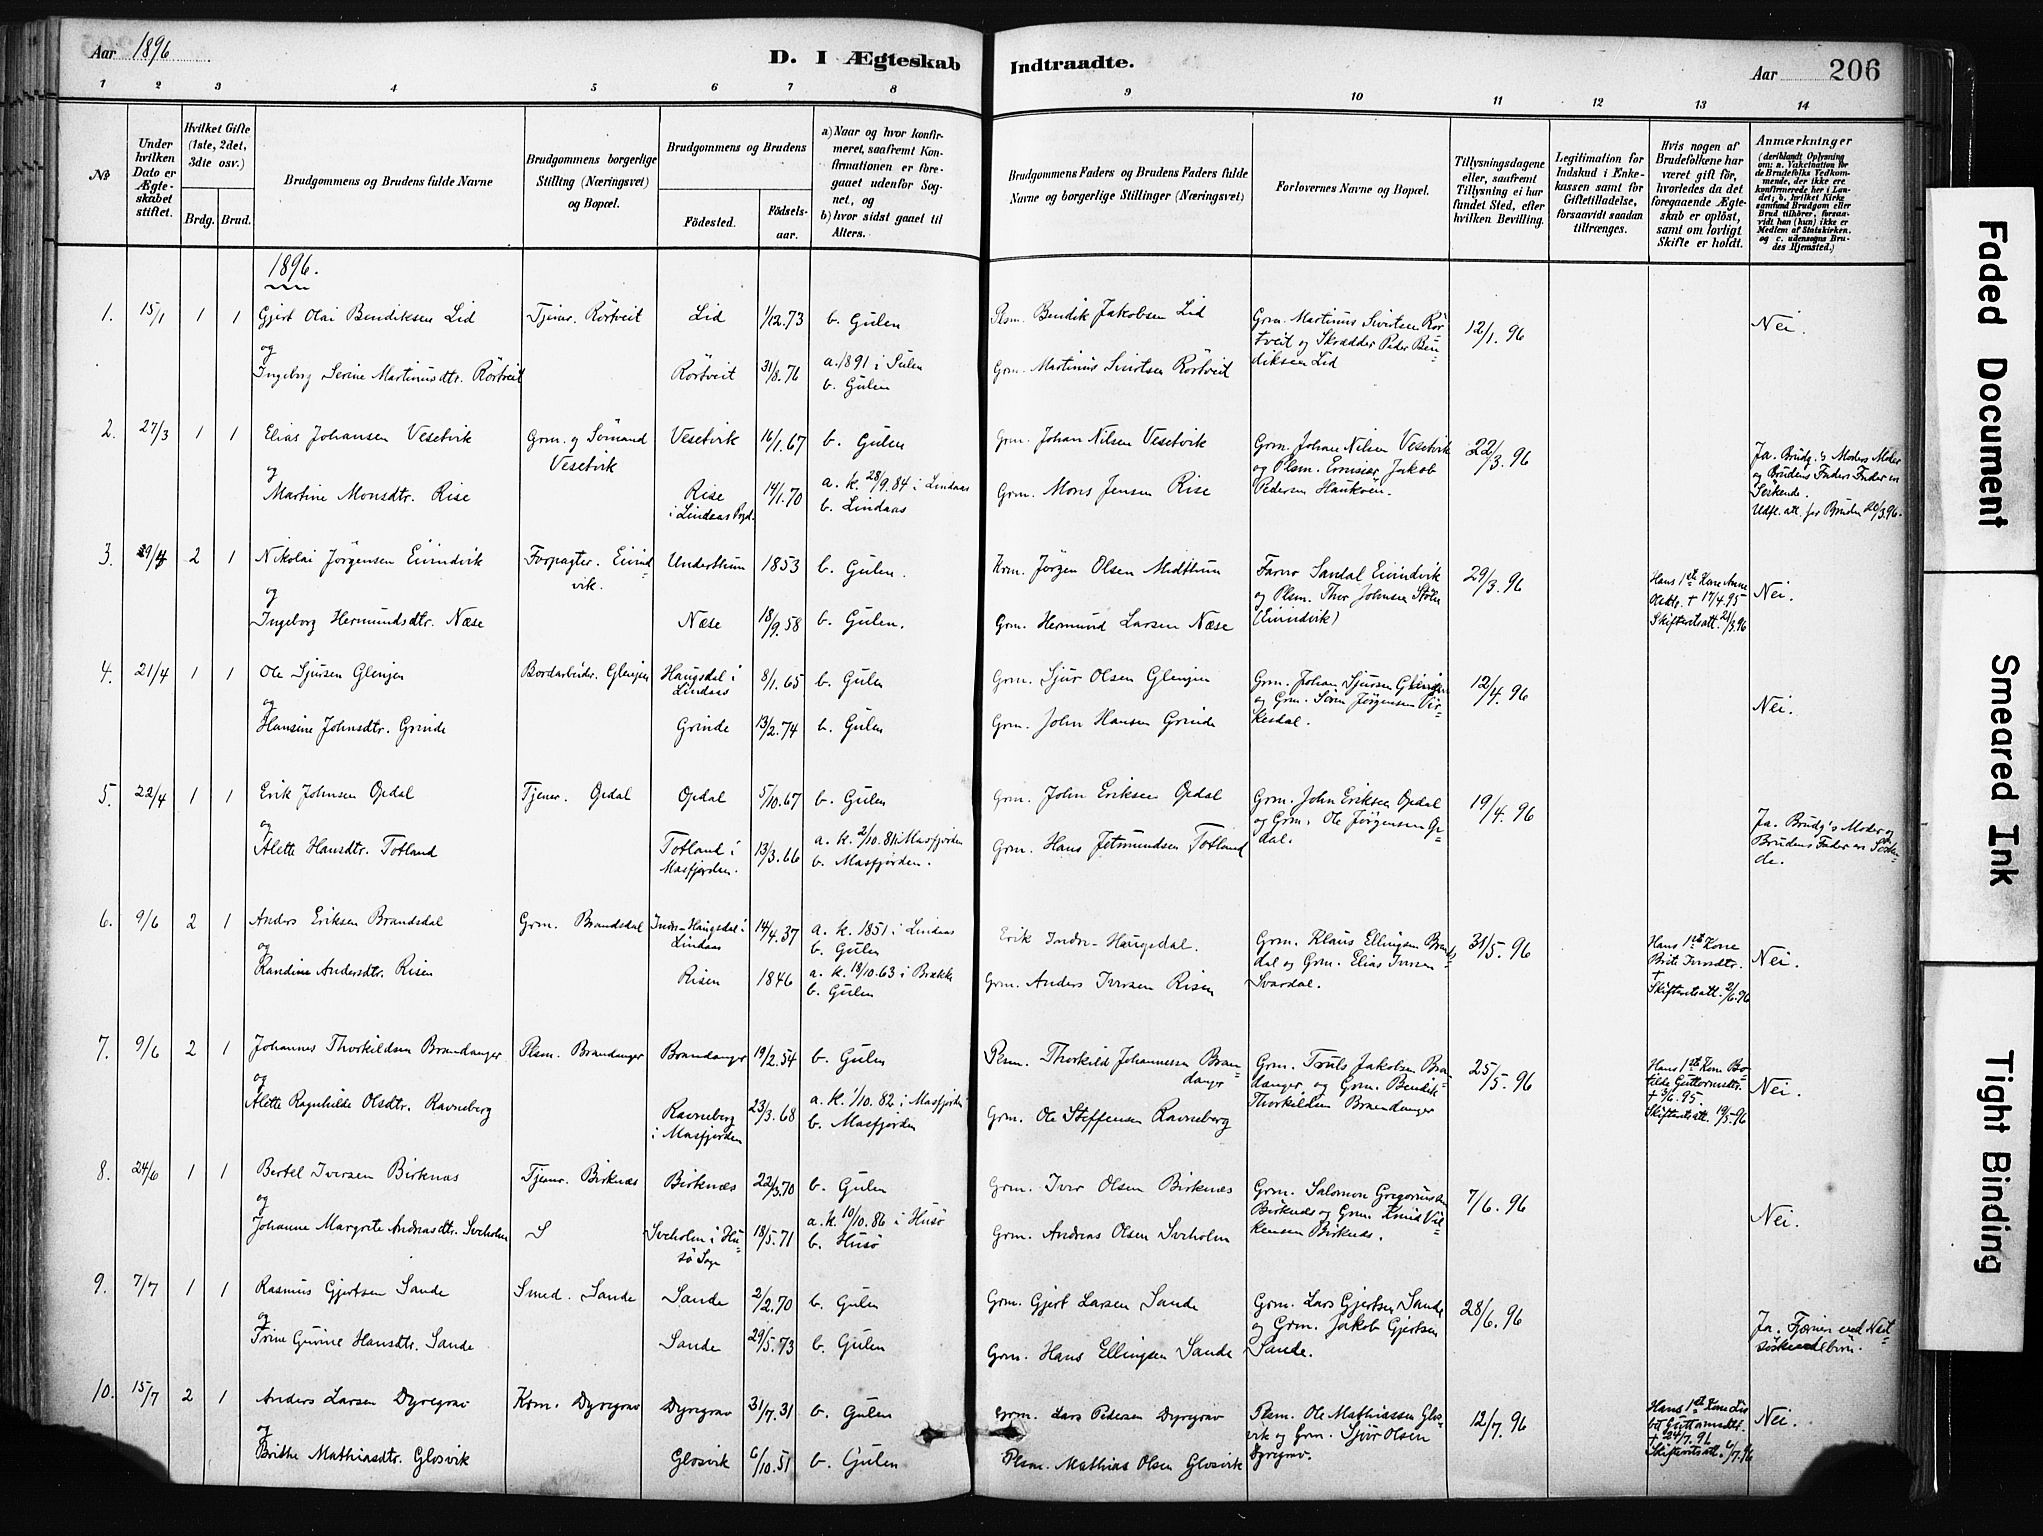 Aar 1896
D. I Ægteskab Indtraadte.
Aar 206
1 2 3 4 5 6 7 8 9 10 11 12 13 14
No
Under
hvilken
Dato er
Ægte-
skabet
stiftet.
Hvilket Gifte
(1ste, 2det,
3die osv.)
Brdg. Brud.
Brudgommens og Brudens fulde Navne
Brudgommens borgerlige
Stilling (Næringsvei)
og Bopæl.
Brudgommens og Brudens
Fødested.
Fødsels-
aar.
a) Naar og hvor konfir-
meret, saafremt Kon-
firmationen er fore-
gaaet udenfor Sog-
net, og
b) hvor sidst gaaet til
Alters.
Brudgommens Faders og Brudens Faders fulde
Navne og borgerlige Stillinger (Næringsvei)
Forlovernes Navne og Bopæl.
Tillysningsdagene
eller, saafremt
Tillysning ei har
fundet Sted, efter
hvilken Bevilling.
Legitimation for
Indskud i Enke-
kassen samt for
Giftetilladelse,
forsaavidt saadan
tiltrænges.
Hvis nogen af
Brudefolkene har
været gift før,
hvorledes da det
foregaaende Ægte-
skab er opløst,
samt om lovligt
Skifte er holdt.
Anmærkninger
(deriblandt Oplysning
om: a. Vakcination for
de Brudefolks Vedkom-
mende, der ikke ere
konfirmerede her i Lan-
det; b. hvilket Kirke-
samfund Brudgom eller
Brud tilhører, forsaa-
vidt han (hun) ikke er
Medlem af Statskirken.
og c. udensogns Bru-
des Hjemsted.)
1896.
1. 15/1 1 1 Gjert Olai Bendiksen Lid Tjener. Rörtveit Lid 1/12.73 b. Gulen Plsm. Bendik Jakobsen Lid
Grm. Martinus Sivertsen Rör-
tveit og Skrædder Peder Ben-
diksen Lid
12/1. 96 Nei.
og
Ingeborg Serine Martinusdtr. Rörtveit Rörtveit 31/8.76 a. 1891 i Sulen
b. Gulen
Grm. Martinus Sivertsen Rörtveit
2. 27/3 1 1 Elias Johansen Vesetvik Grm. og Sömand
Vesetvik
Vesetvik 16/1.67 b. Gulen Grm. Johan Nilsen Vesetvik
Grm. Johan Nilsen Vesetvik
og Plsm. Jakob
Pedersen Haukøen.
22/3. 96
Ja. Brudg.'s Moders Moder
og Brudens Faders Fader er
Söskende.
Udfl. att. for Bruden 20/3.96.
og
Martine Monsdtr. Rise Rise
i Lindaas Prgd.
14/1.70 a. k. 28/9.84 i Lindaas
b. Lindaas
Grm. Mons Jensen Rise
3. 29/4 2 1 Nikolai Jörgensen Eivindvik Forpagter. Eivind-
vik.
Underthun 1853 b. Gulen. Krm. Jörgen Olsen Midthun
Sandal Eivindvik
og Plsm. Thor Johnsen Stölen
(Eivindvik)
29/3. 96
Hans 1ste Kone Anne
Olsdtr. † 17/4.95
Skifteretsatt. 21/3.96
Nei.
og
Ingeborg Hermundsdtr. Næse Næse 18/9.58 b. Gulen. Grm. Hermund Larsen Næse
4. 21/4 1 1 Ole Sjursen Glenjen Bordarbeider. Glenjen Haugsdal i
Lindaas
8/1.65 b. Gulen Grm. Sjur Olsen Glenjen
Grm. Johan Sjursen Glenjen
og Grm. Sören Jörgensen Vir-
kesdal.
12/4. 96 Nei.
og
Hansine Johnsdtr. Grinde Grinde 13/2.74 b. Gulen Grm. John Hansen Grinde
5. 22/4 1 1 Erik Johnsen Opdal Tjener. Opdal Opdal 5/10.67 b. Gulen Grm. John Eriksen Opdal
Grm. John Eriksen Opdal
og Grm. Ole Jörgensen Op-
dal.
19/4. 96
Ja. Brudg's Moder og
Brudens Fader er Sösken-
de.
og
Alette Hansdtr. Totland Totland i
Masfjorden.
13/3.66 a. k. 2/10.81 i Masfjorden
b. Masfjorden.
Grm. Hans Jetmundsen Totland
6. 9/6 2 1 Anders Eriksen Brandsdal Grm. Brandsdal Indre-Haugsdal i
Lindaas
14/4.37 a. k. 1851 i Lindaas
b. Gulen
Erik Indre-Haugsdal.
Grm. Klaus Ellingsen Brands-
dal og Grm. Elias Iversen
Svardal.
31/5. 96
Hans 1ste Kone
Brite Iversdtr.
†
Skifteretsatt. 2/6.96
Nei.
og
Randine Andersdtr. Risen Risen 1846 a. k. 18/10.63 i Brække
b. Gulen
Grm. Anders Iversen Risen
7. 9/6 2 1 Johannes Thorkildsen Brandanger Plsm. Brandanger Brandanger 19/2.54 b. Gulen Plsm. Thorkild Johannessen Bran-
danger
Grm. Truls Jakobsen Bran-
danger, og Grm. Bendik
Thorkildsen Brandanger
25/5. 96
Hans 1ste Kone Bo-
tilde Guttormsdtr.
† 3/6.95.
Skifteretsatt. 19/5.96
Nei.
og
Alette Ragnhilde Olsdtr. Ravneberg Ravneberg
i Masfjorden
23/3.68 a. k. 1/10.82 i Masfjorden
b. Masfjorden
Grm. Ole Steffensen Ravneberg
8. 24/6 1 1 Bertel Iversen Birknæs Tjener. Birknæs Birknæs 22/3.70 b. Gulen Grm. Iver Olsen Birknæs
Grm. Salomon Gregoriussen
Birknæs og Grm. Knud Vil-
kensen Birknæs.
7/6. 96 Nei.
og
Johanne Margrete Andreasdtr. Sveholm Sveholm i Hu-
sö Sogn
18/5.71 a. k. 10/10.86 i Husö
b. Husö
Grm. Andreas Olsen Sveholm
9. 7/7 1 1 Rasmus Gjertsen Sande Smed. Sande Sande 2/2.70 b. Gulen Grm. Gjert Larsen Sande
Grm. Lars Gjertsen Sande
og Grm. Jakob Gjertsen
Sande.
28/6. 96
Ja. Fjernere end Næst-
söskendebörn.
og
Trine Gurine Hansdtr. Sande Sande 29/5.73 b. Gulen Grm. Hans Ellingsen Sande
10. 15/7 2 1 Anders Larsen Dyregrov Krm. Dyregrov Dyregrov 31/7.31 b. Gulen Grm. Lars Pedersen Dyregrov
Plsm. Ole Mathiassen Glos-
vik og Grm. Sjur Olsen
Dyregrov.
12/7. 96
Hans 1ste Kone Lis-
bet Guttormsdtr.
† 24/7.96
Skifteretsatt. 6/7.96
Nei.
og
Brithe Mathiasdtr. Glosvik Glosvik 6/10.51 b. Gulen Plsm. Mathias Olsen Glosvik
Faded Document
Smeared Ink
Tight Binding